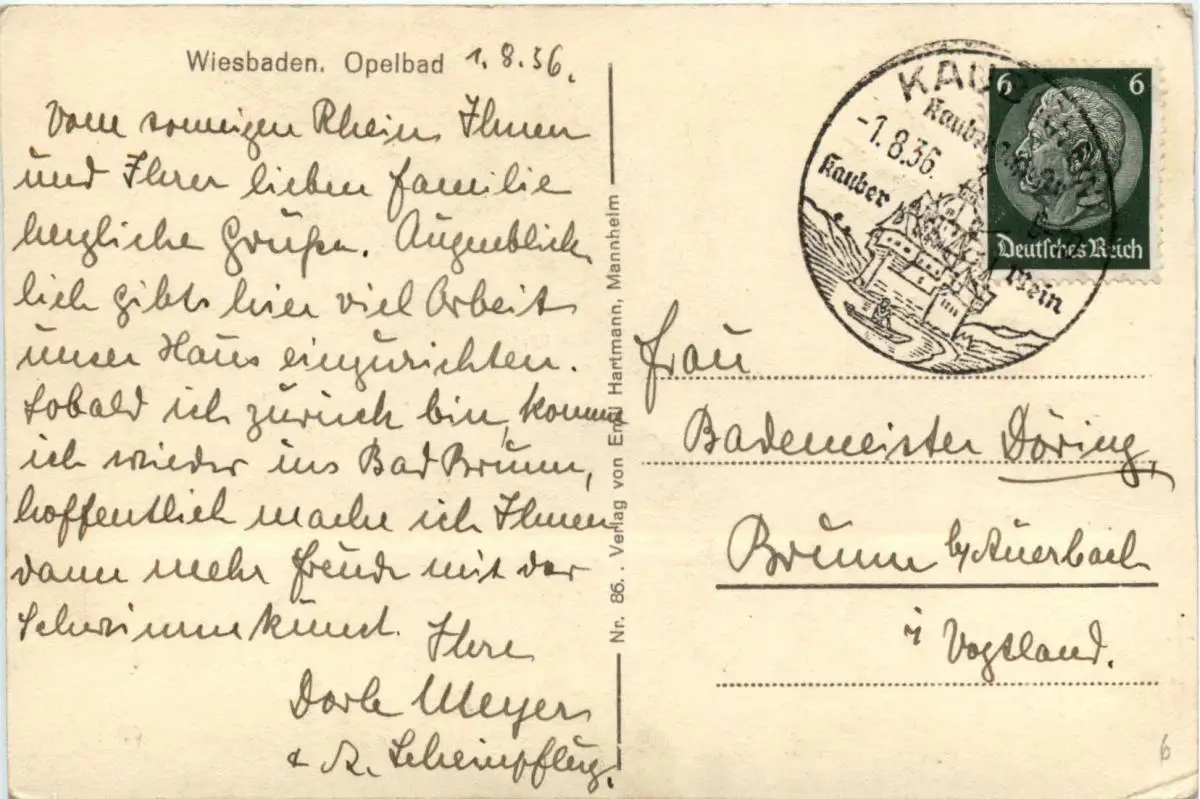 Wiesbaden. Opelbad 1.8.36.
Vom sonnigen Rhein Ihnen
und Ihrer lieben Familie
herzliche Grüße. Augenblick
lich gibts hier viel Arbeit
unser Haus einzurichten.
Sobald ich zurück bin, komme
ich wieder ins Bad Brunn,
hoffentlich mache ich Ihnen
dann mehr Freude mit der
Schwimmkunst. Ihre
Dorle Meyer
& R. Scheinpflug.
Nr. 86. . Verlag von Hartmann, Mannheim
KAUB
-1.8.36
Kauber
Kauber
Wein
6 6
Deutsches Reich
Frau
Bademeister Döring,
Brunn b/Auerbach
i Vogtland.
6